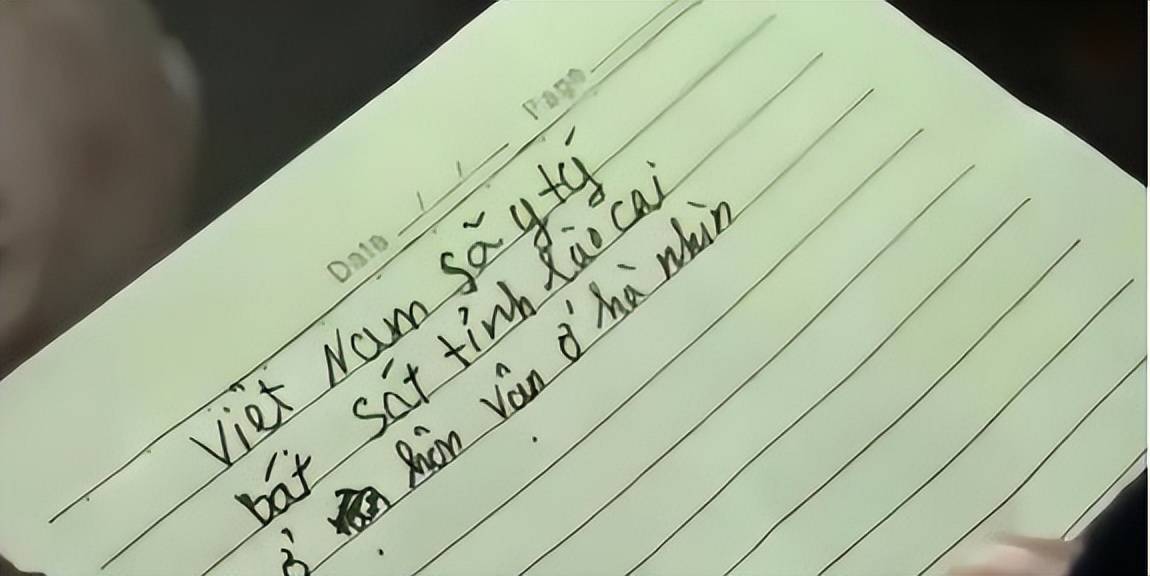 Date / / Page
Viêt Nam sã y tý
bát sát tỉnh lão cai
ở hôn vân ở hà nhìn